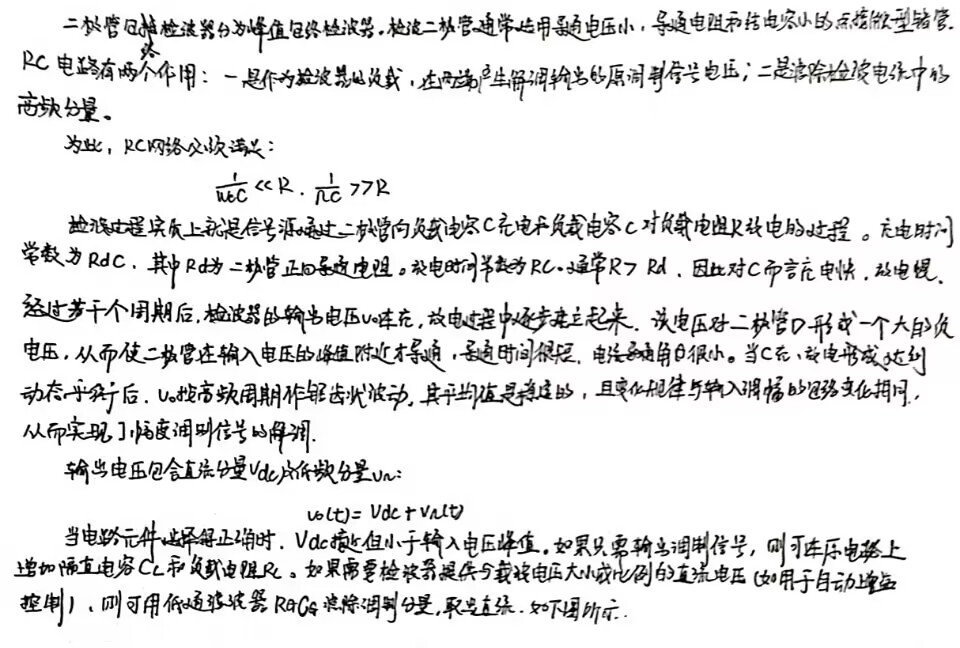 二极管包络检波器台为峰值包络检波器。检波二极管通常选用导通电压小,导通电阻和结电容小的点接触型锗管.
RC电路有两个作用:一是作为检波器的负载,在两端产生解调输出的原调制信号电压;二是滤除检波电流中的
高频分量。
为此,RC网络必须满足:
1/ωcC <<R . 1/ΩC >>R
检波过程实质上就是信号源通过二极管向负载电容C充电和负载电容C对负载电阻R放电的过程。充电时间
常数为RdC,其中Rd为二极管正向导通电阻。放电时间常数为RC。通常R>Rd,因此对C而言充电快,放电慢.
经过若干个周期后,检波器的输出电压Uo在充,放电过程中逐步建立起来.该电压对二极管D形成一个大的负
电压,从而使二极管在输入电压的峰值附近才导通,导通时间很短,电流导通角θ很小。当C充、放电形成达到
动态平衡后,Uo按高频周期作锯齿状波动,其平均值是稳定的,且变化规律与输入调幅的包络变化相同,
从而实现了幅度调制信号的解调.
输出电压包含直流分量Vdc及低频分量UΩ:
Uo(t)=Vdc+UΩ(t)
当电路元件选择得正确时,Vdc接近但小于输入电压峰值。如果只需输出调制信号,则可在原电路上
增加隔直电容CL和负载电阻RL。如果需要检波器提供与载波电压大小成比例的直流电压(如用于自动增益
控制),则可用低通滤波器RGCG滤除调制分量,取出直流.如下图所示.